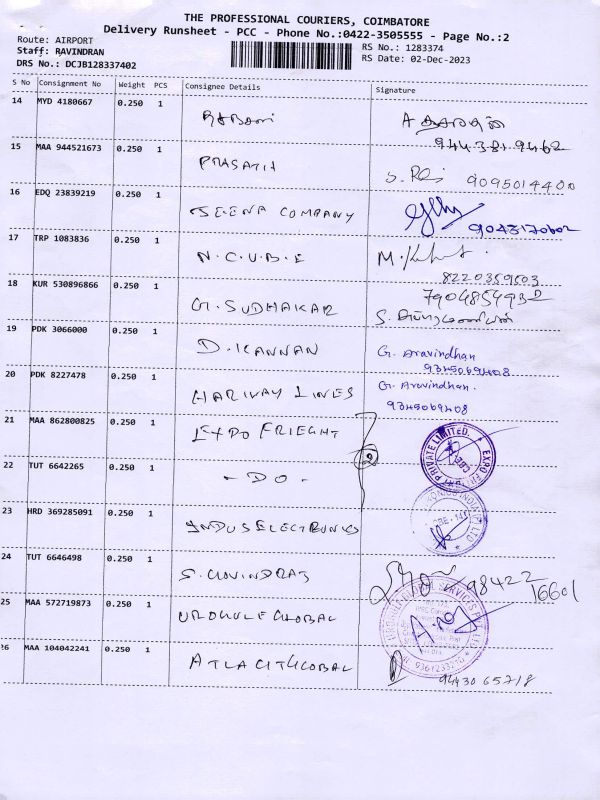 THE PROFESSIONAL COURIERS, COIMBATORE
Delivery Runsheet - PCC - Phone No.:0422-3505555 - Page No.:2
Route: AIRPORT
Staff: RAVINDRAN
DRS No.: DCJB128337402
RS No.: 1283374
RS Date: 02-Dec-2023
S No Consignment No Weight PCS Consignee Details Signature
14 MYD 4180667 0.250 1
944.381.9462
15 MAA 944521673 0.250 1 PRASATH
9095014400
16 EDQ 23839219 0.250 1 JEENA COMPANY
9043170602
17 TRP 1083836 0.250 1 N.C.U.B.E M.
8220359503
18 KUR 530896866 0.250 1 G. SUDHAKAR
7904854932
S.
19 PDK 3066000 0.250 1 D. KANNAN G. Aravindhan
9345069408
20 PDK 8227478 0.250 1 HARIWAY LINES G. Aravindhan.
9345069408
21 MAA 862800825 0.250 1 EXPO FRIEGHT PRIVATE LIMITED
22 TUT 6642265 0.250 1 - DO -
23 HRD 369285091 0.250 1 INDUS ELECTRONICS
24 TUT 6646498 0.250 1 S. GOVINDRAJ 98422
16601
25 MAA 572719873 0.250 1 UROGULF GLOBAL
26 MAA 104042241 0.250 1 ATLACITGLOBAL 9443065718